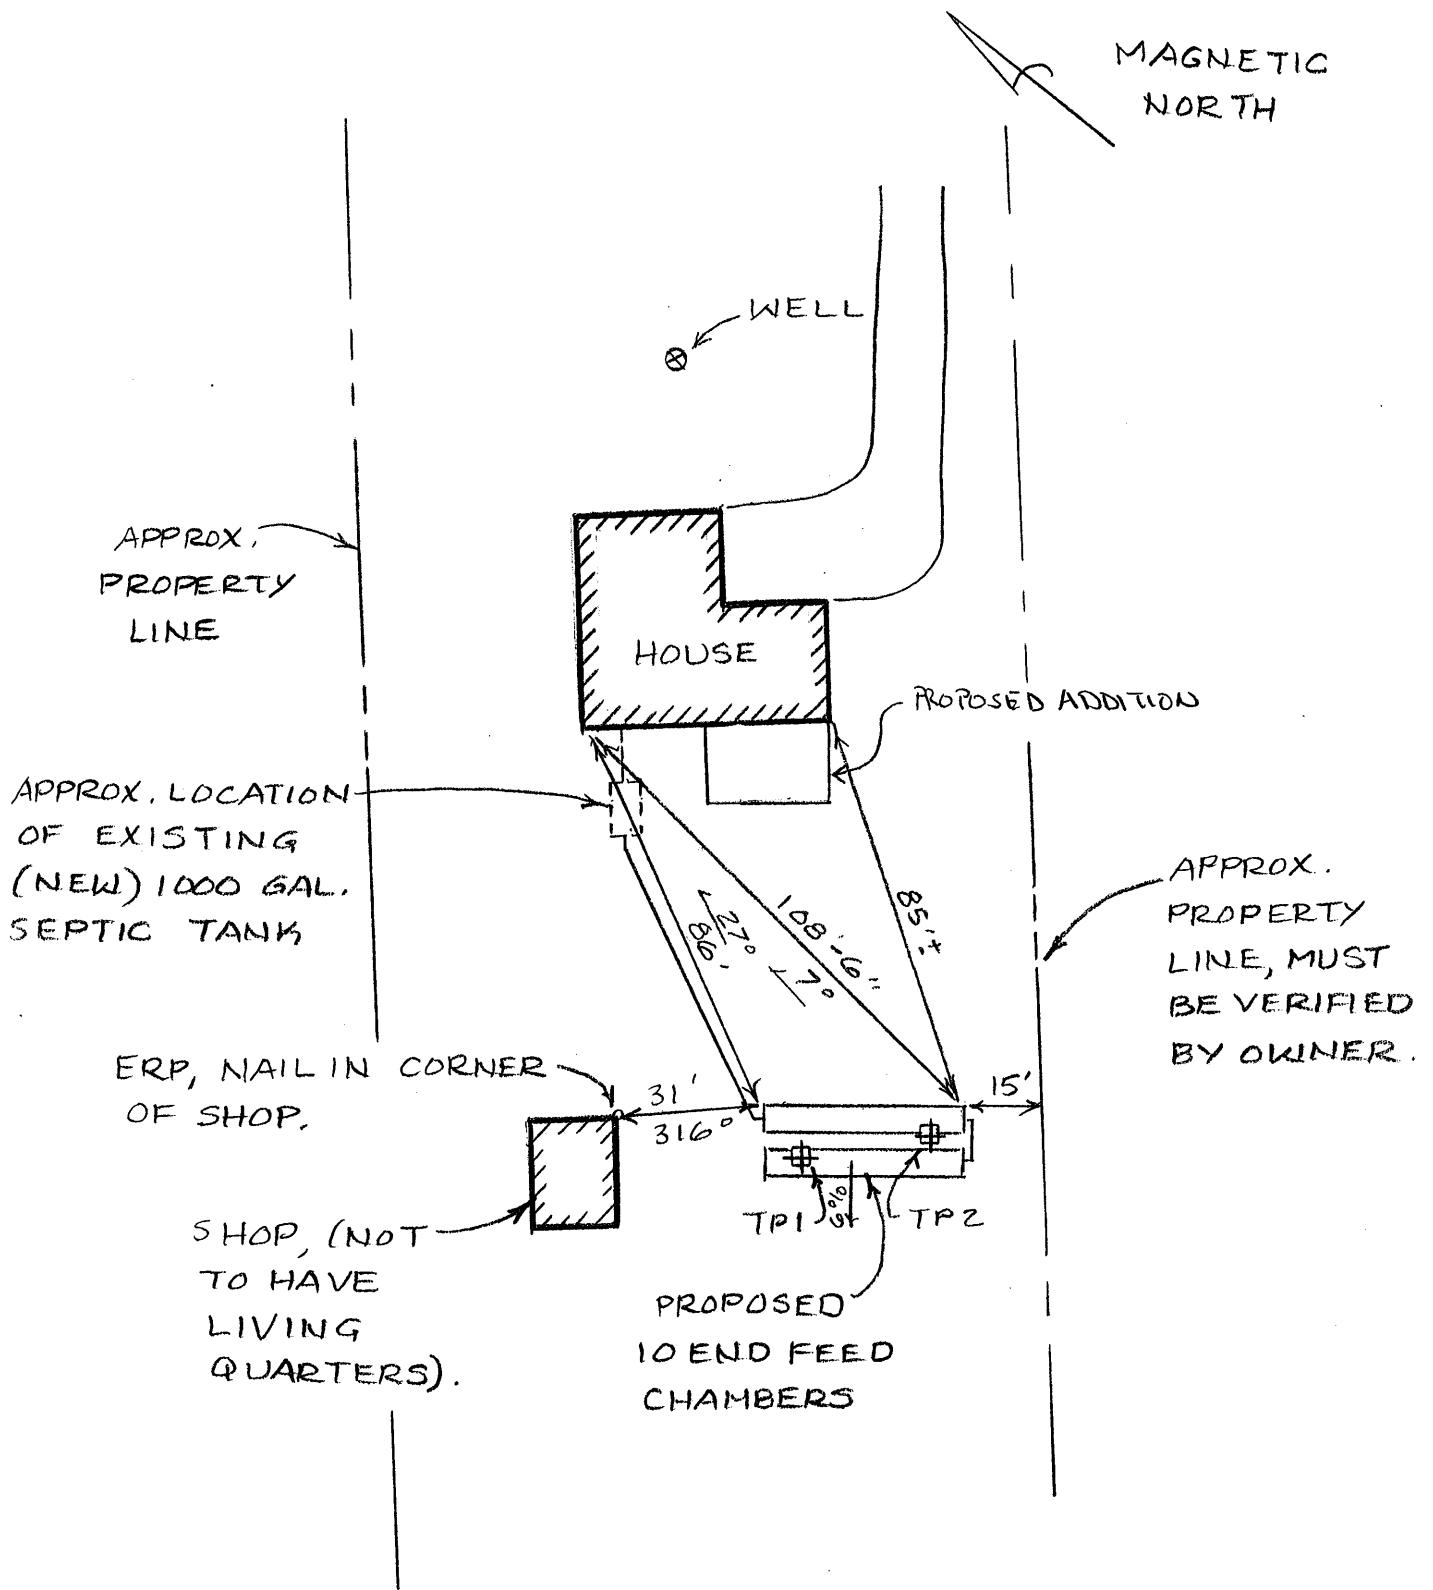 MAGNETIC
NORTH
WELL
APPROX.
PROPERTY
LINE
HOUSE
PROPOSED ADDITION
APPROX. LOCATION
OF EXISTING
(NEW) 1000 GAL.
SEPTIC TANK
APPROX.
PROPERTY
LINE, MUST
BE VERIFIED
BY OWNER.
27°
86'
108'-6"
7°
85'±
ERP, NAIL IN CORNER
OF SHOP.
31'
316°
15'
SHOP, (NOT
TO HAVE
LIVING
QUARTERS).
TP1
TP2
PROPOSED
10 END FEED
CHAMBERS